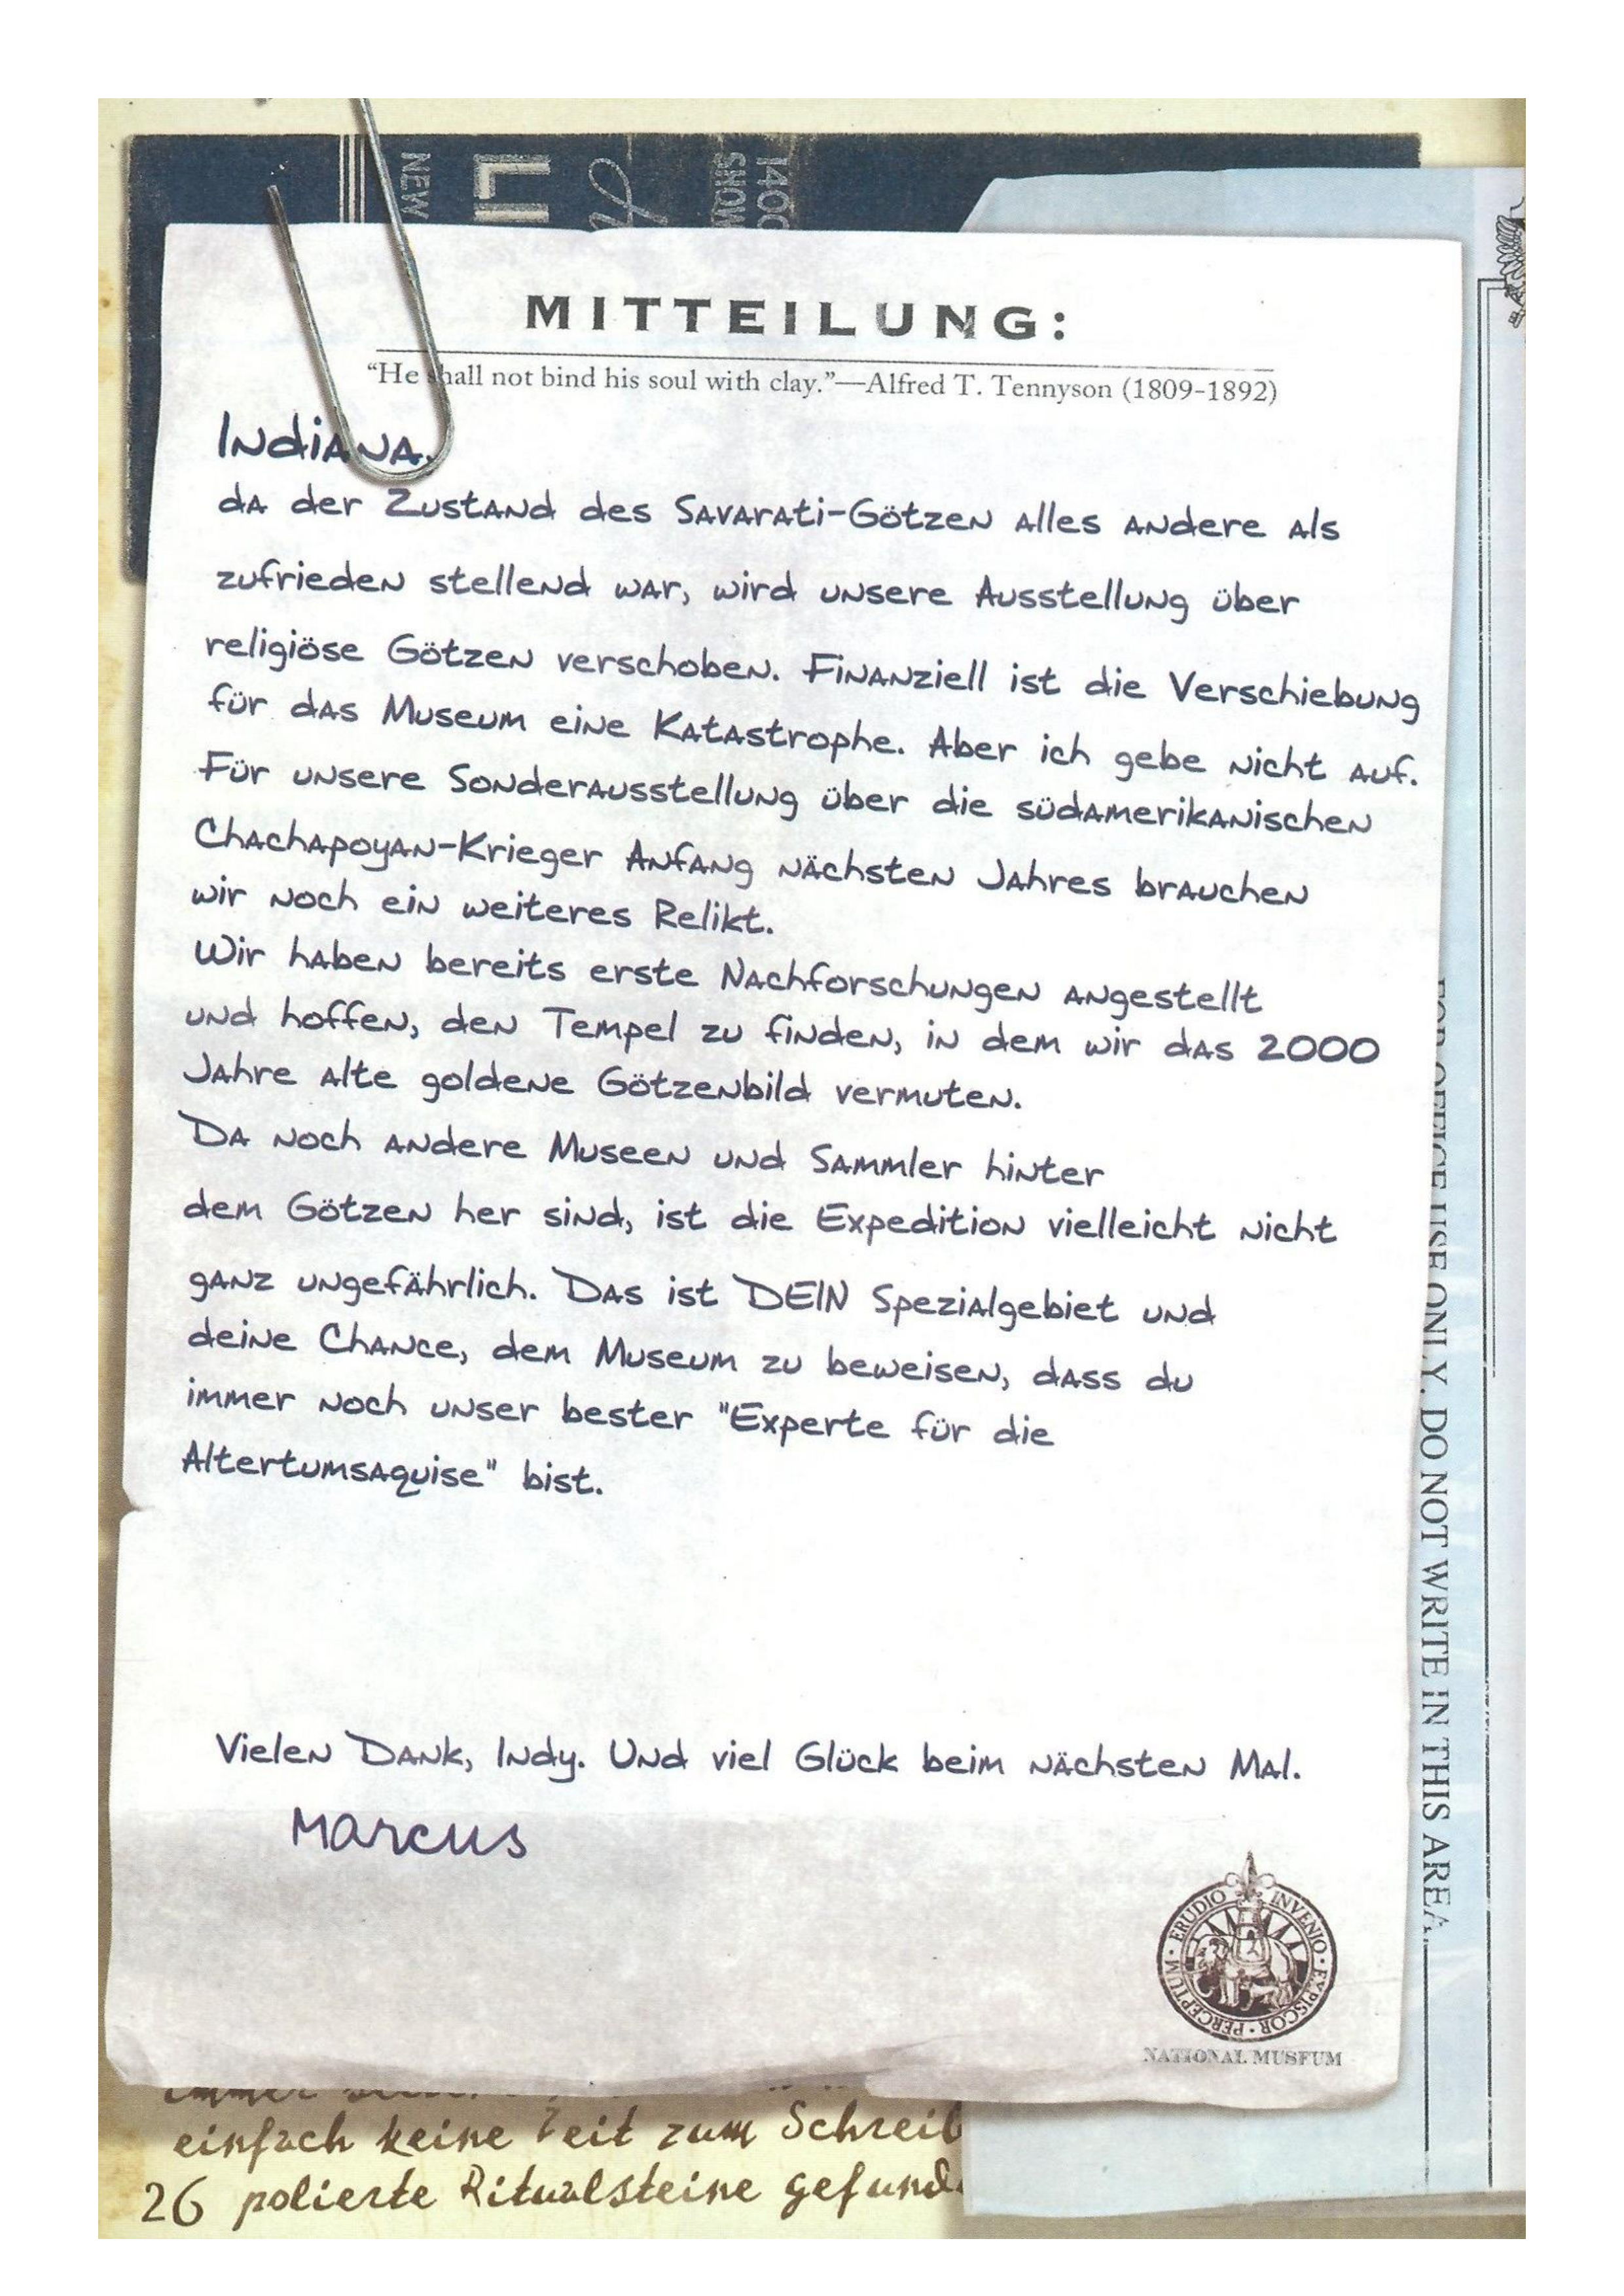 NEW
LI
1400
SHOW
MITTEILUNG:
“He shall not bind his soul with clay.”—Alfred T. Tennyson (1809-1892)
Indiana,
da der Zustand des Savarati-Götzen alles andere als
zufrieden stellend war, wird unsere Ausstellung über
religiöse Götzen verschoben. Finanziell ist die Verschiebung
für das Museum eine Katastrophe. Aber ich gebe nicht auf.
Für unsere Sonderausstellung über die südamerikanischen
Chachapoyan-Krieger Anfang nächsten Jahres brauchen
wir noch ein weiteres Relikt.
Wir haben bereits erste Nachforschungen angestellt
und hoffen, den Tempel zu finden, in dem wir das 2000
Jahre alte goldene Götzenbild vermuten.
Da noch andere Museen und Sammler hinter
dem Götzen her sind, ist die Expedition vielleicht nicht
ganz ungefährlich. Das ist DEIN Spezialgebiet und
deine Chance, dem Museum zu beweisen, dass du
immer noch unser bester "Experte für die
Altertumsaquise" bist.
Vielen Dank, Indy. Und viel Glück beim nächsten Mal.
Marcus
ERUDIO · INVENIO · EXPISCOR · PERCEPTUM ·
NATIONAL MUSEUM
FOR OFFICE USE ONLY. DO NOT WRITE IN THIS AREA.
immer
einfach keine Zeit zum Schreib
26 polierte Ritualsteine gefund